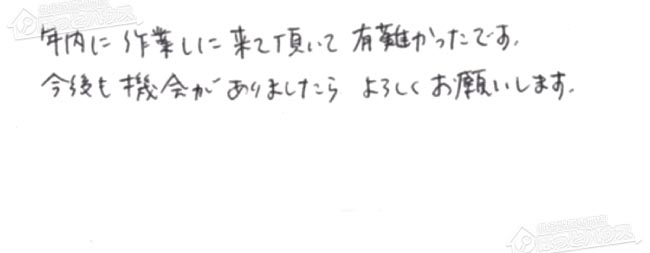 年内に作業しに来て頂いて有難かったです。
今後も機会がありましたらよろしくお願いします。